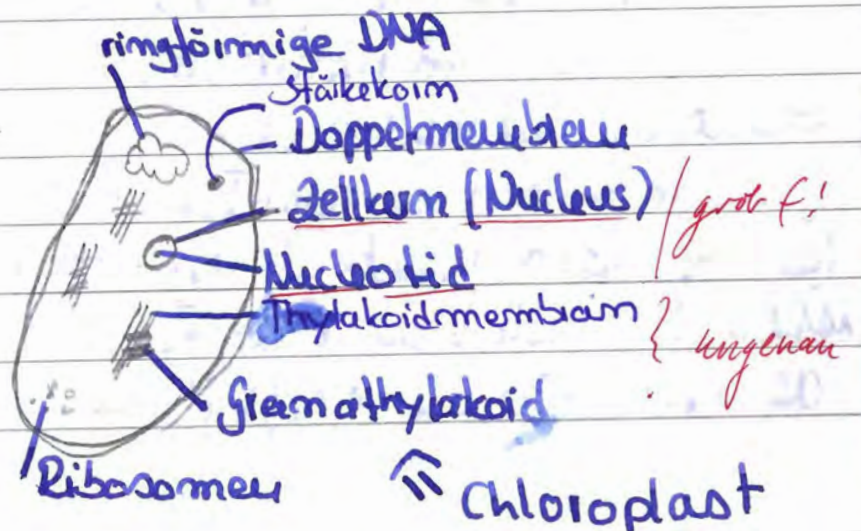 ringförmige DNA
Stärkekorn
Doppelmembran
Zellkern (Nucleus)
grob f!
Nucleotid
Thylakoidmembran
ungenau
Granathylakoid
Ribosomen
⇑ Chloroplast